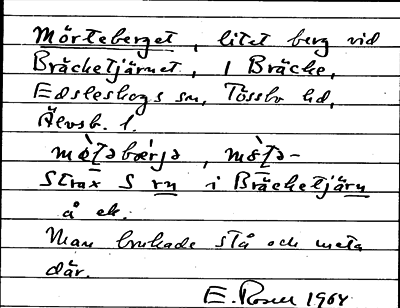 Mörteberget, litet berg vid
Bräcketjärnet, i Bräcke,
Edsleskogs sn, Tössbo hd,
Älvsb. l.
Strax S vn i Bräcketjärn
å ek.
Man brukade stå och meta
där.
E. Rosen 1964